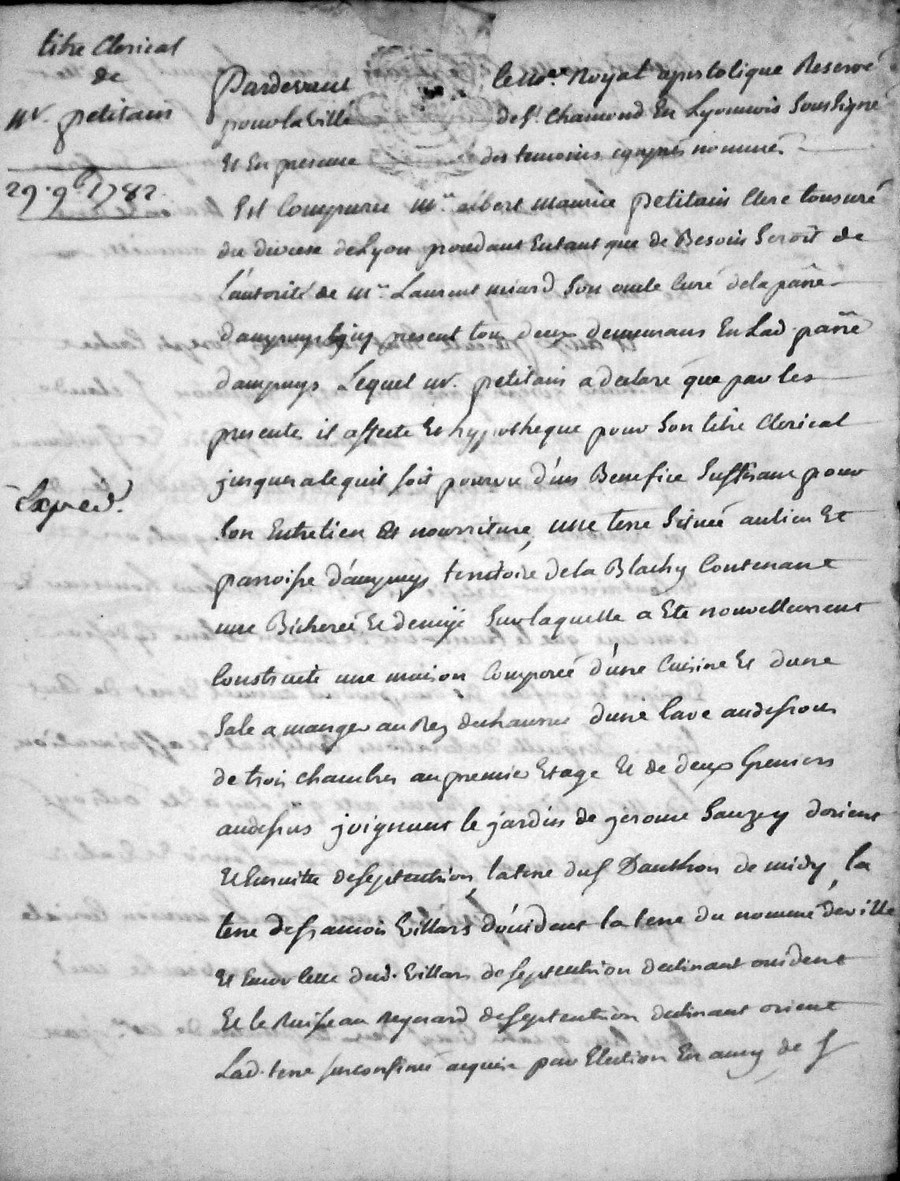 titre Clerical
de
Mr. petitain
29. 9bre 1782.
Expéd.
Pardevant le No.re Royal apostolique Reservé
pour la ville de St. Chamond En Lyonnois Soussigné
Et En presence des temoins cyaprès nommés
Est Comparu Mre. albert Maurice Petitain Clerc tonsuré
du diocese de Lyon procedant Entant que de Besoin Seroit de
l'autorité de Mre. Laurent miard Son oncle Curé de la parre.
dampuys present tous deux demeurans En Lad. parre
dampuys Lequel Mr. petitain a declaré que par les
presentes il affecte Et hypotheque pour Son titre Clerical
jusques a le quil soit pourvu d'un Benefice Suffisant pour
Son Entretien Et nourriture, une terre Scituée au lieu Et
parroisse d'ampuys territoire de la Blachy Contenant
une Bicherée Et demije Sur laquelle a Eté nouvellement
Construite une maison Composée d'une Cuisine Et d'une
Sale a manger au Rez de chaussée d'une Cave audessous
de trois chambres au premier Etage Et de deux Greniers
audessus joignant le jardin de jerome Sauzey d'orient
Et Ensuitte de septentrion, la terre du S. Danthon de midy, la
terre de francois Villars d'occident la terre du nommé deville
Et Encor celle dud. Villars de septentrion declinant occident
Et le Ruisseau Reynard de septentrion declinant orient
Lad. terre surconfinée acquise par Election En amy de S